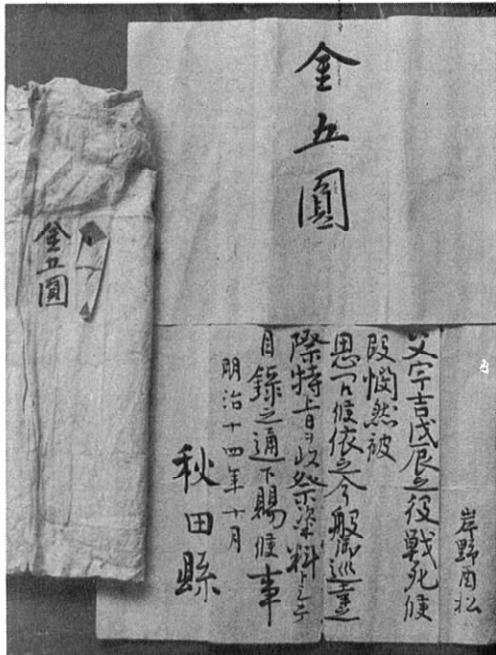 金五圓
岸野酉松
父宇吉戊辰之役戦死候
段憫然被
思召候依之今般御巡幸之
際特旨ヲ以祭粢料トシテ
目錄之通下賜候事
明治十四年十月
秋田縣
金五圓